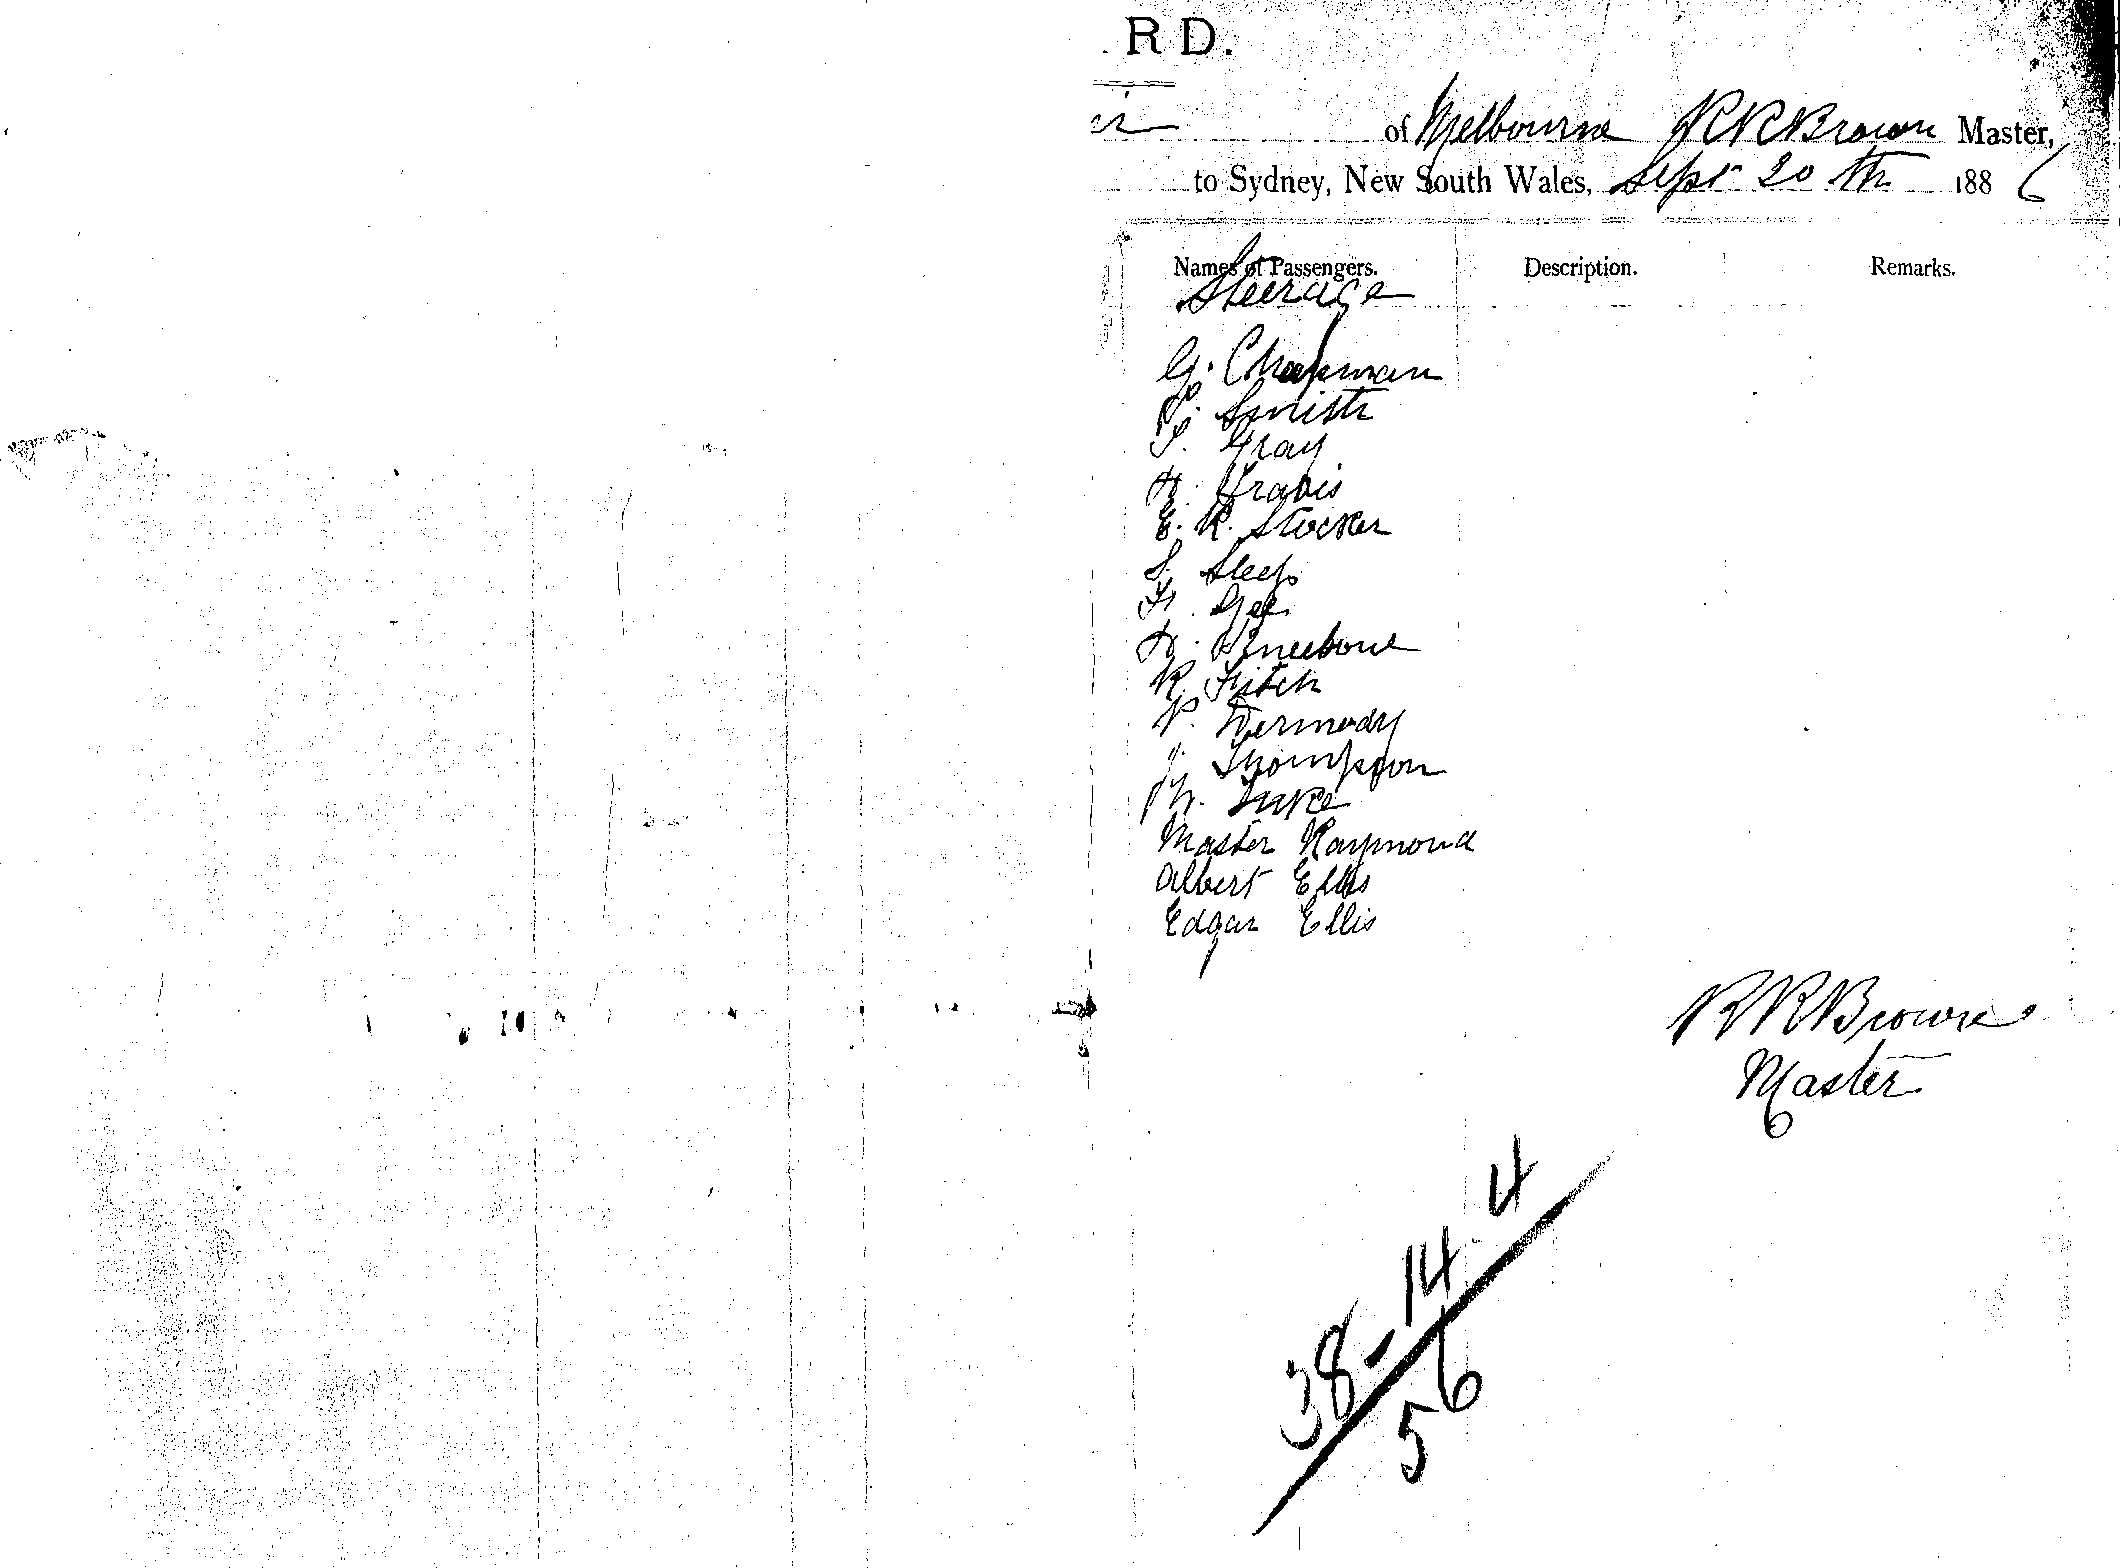 RD.
of Melbourne RRBrown Master,
to Sydney, New South Wales, Sept 20th 1886
Names of Passengers. Description. Remarks.
Steerage
G. Chapman
Smith
Gray
H. Travis
E. R. Stocker
S. Sleep
Fr. Gee
H. Kneebone
R. Fitch
P. Dermody
J. Thompson
M. Luke
Master Raymond
Albert Ellis
Edgar Ellis
RRBrown
Master
38 . 14 . 4
56